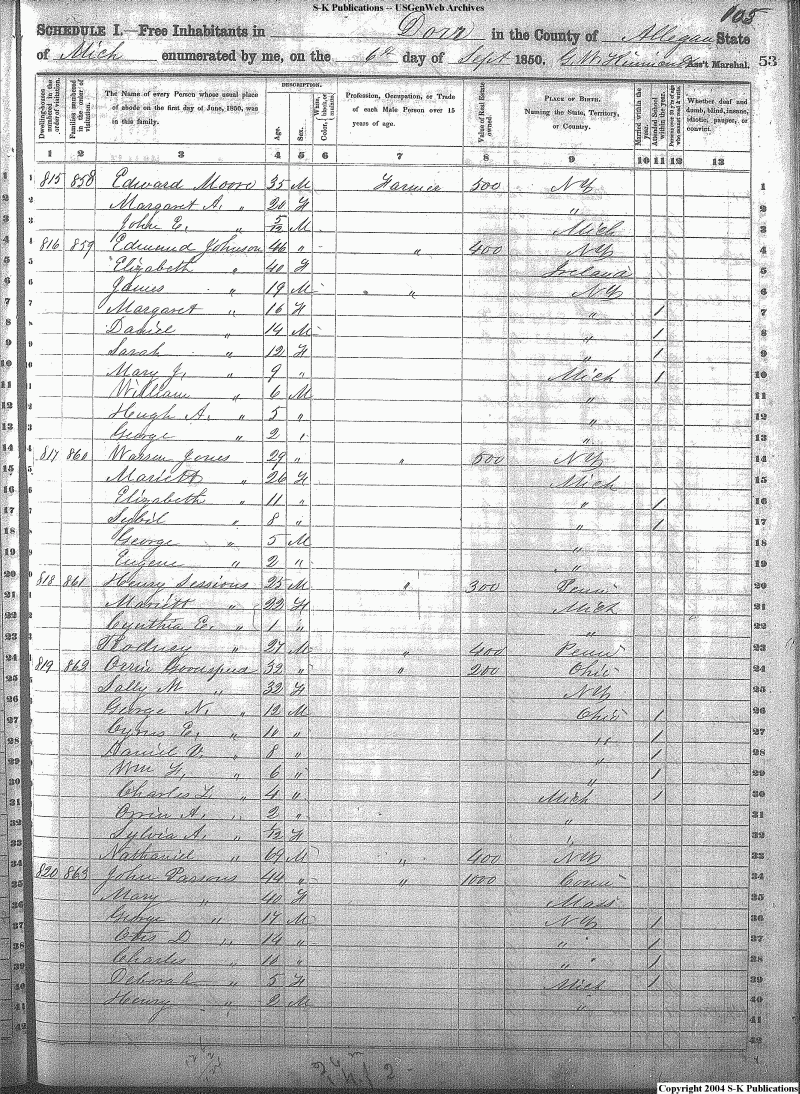 S-K Publications -- USGenWeb Archives
105
SCHEDULE I.—Free Inhabitants in Dorr in the County of Allegan State
of Mich enumerated by me, on the 6th day of Sept 1850. G. W. Ass't Marshal. 53
Dwelling-houses numbered in the order of visitation. Families numbered in the order of visitation. The Name of every Person whose usual place of abode on the first day of June, 1850, was in this family. DESCRIPTION. Age. Sex. Color White, black, or mulatto. Profession, Occupation, or Trade of each Male Person over 15 years of age. Value of Real Estate owned. PLACE OF BIRTH. Naming the State, Territory, or Country. Married within the year. Attended School within the year. Persons over 20 y'rs of age who cannot read & write. Whether deaf and dumb, blind, insane, idiotic, pauper, or convict.
1 2 3 4 5 6 7 8 9 10 11 12 13
1 815 858 Edward Moore 35 M Farmer 500 NY 1
2 Margaret A. " 20 F " 2
3 John E. " 5/12 M Mich 3
4 816 859 Edmund Johnson 46 " " 400 NY 4
5 Elizabeth " 40 F Ireland 5
6 James " 19 M " NY 6
7 Margaret " 16 F " 1 7
8 Daniel " 14 M " 1 8
9 Sarah " 12 F " 1 9
10 Mary J. " 9 " Mich 1 10
11 William " 6 M " 11
12 Hugh A. " 5 " " 12
13 George " 2 " " 13
14 817 860 Warren Jones 29 " " 500 NY 14
15 Mariett " 26 F Mich 15
16 Elizabeth " 11 " " 1 16
17 Sybil " 8 " " 1 17
18 George " 5 M " 18
19 Eugene " 2 " " 19
20 818 861 Henry Sessions 25 M " 300 Penn 20
21 Mariett " 22 F Mich 21
22 Cynthia E. " 1 " " 22
23 Rodney " 27 M " 400 Penn 23
24 819 862 Orrin 32 " " 200 Ohio 24
25 Sally M " 32 F NY 25
26 George N. " 12 M Ohio 1 26
27 Cyrus E. " 10 " " 1 27
28 Daniel V. " 8 " " 1 28
29 Wm F. " 6 " " 1 29
30 Charles L. " 4 " Mich 1 30
31 Orrin A. " 2 " " 31
32 Sylvia A. " 1/12 F " 32
33 Nathaniel " 64 M " 400 NY 33
34 820 863 John Parsons 44 " " 1000 Conn 34
35 Mary " 40 F Mass 35
36 George " 17 M NY 1 36
37 Otis D " 14 " " 1 37
38 Charles " 10 " " 1 38
39 Deborah " 5 F Mich 1 39
40 Henry " 2 M " 40
41 41
42 42
Copyright 2004 S-K Publications